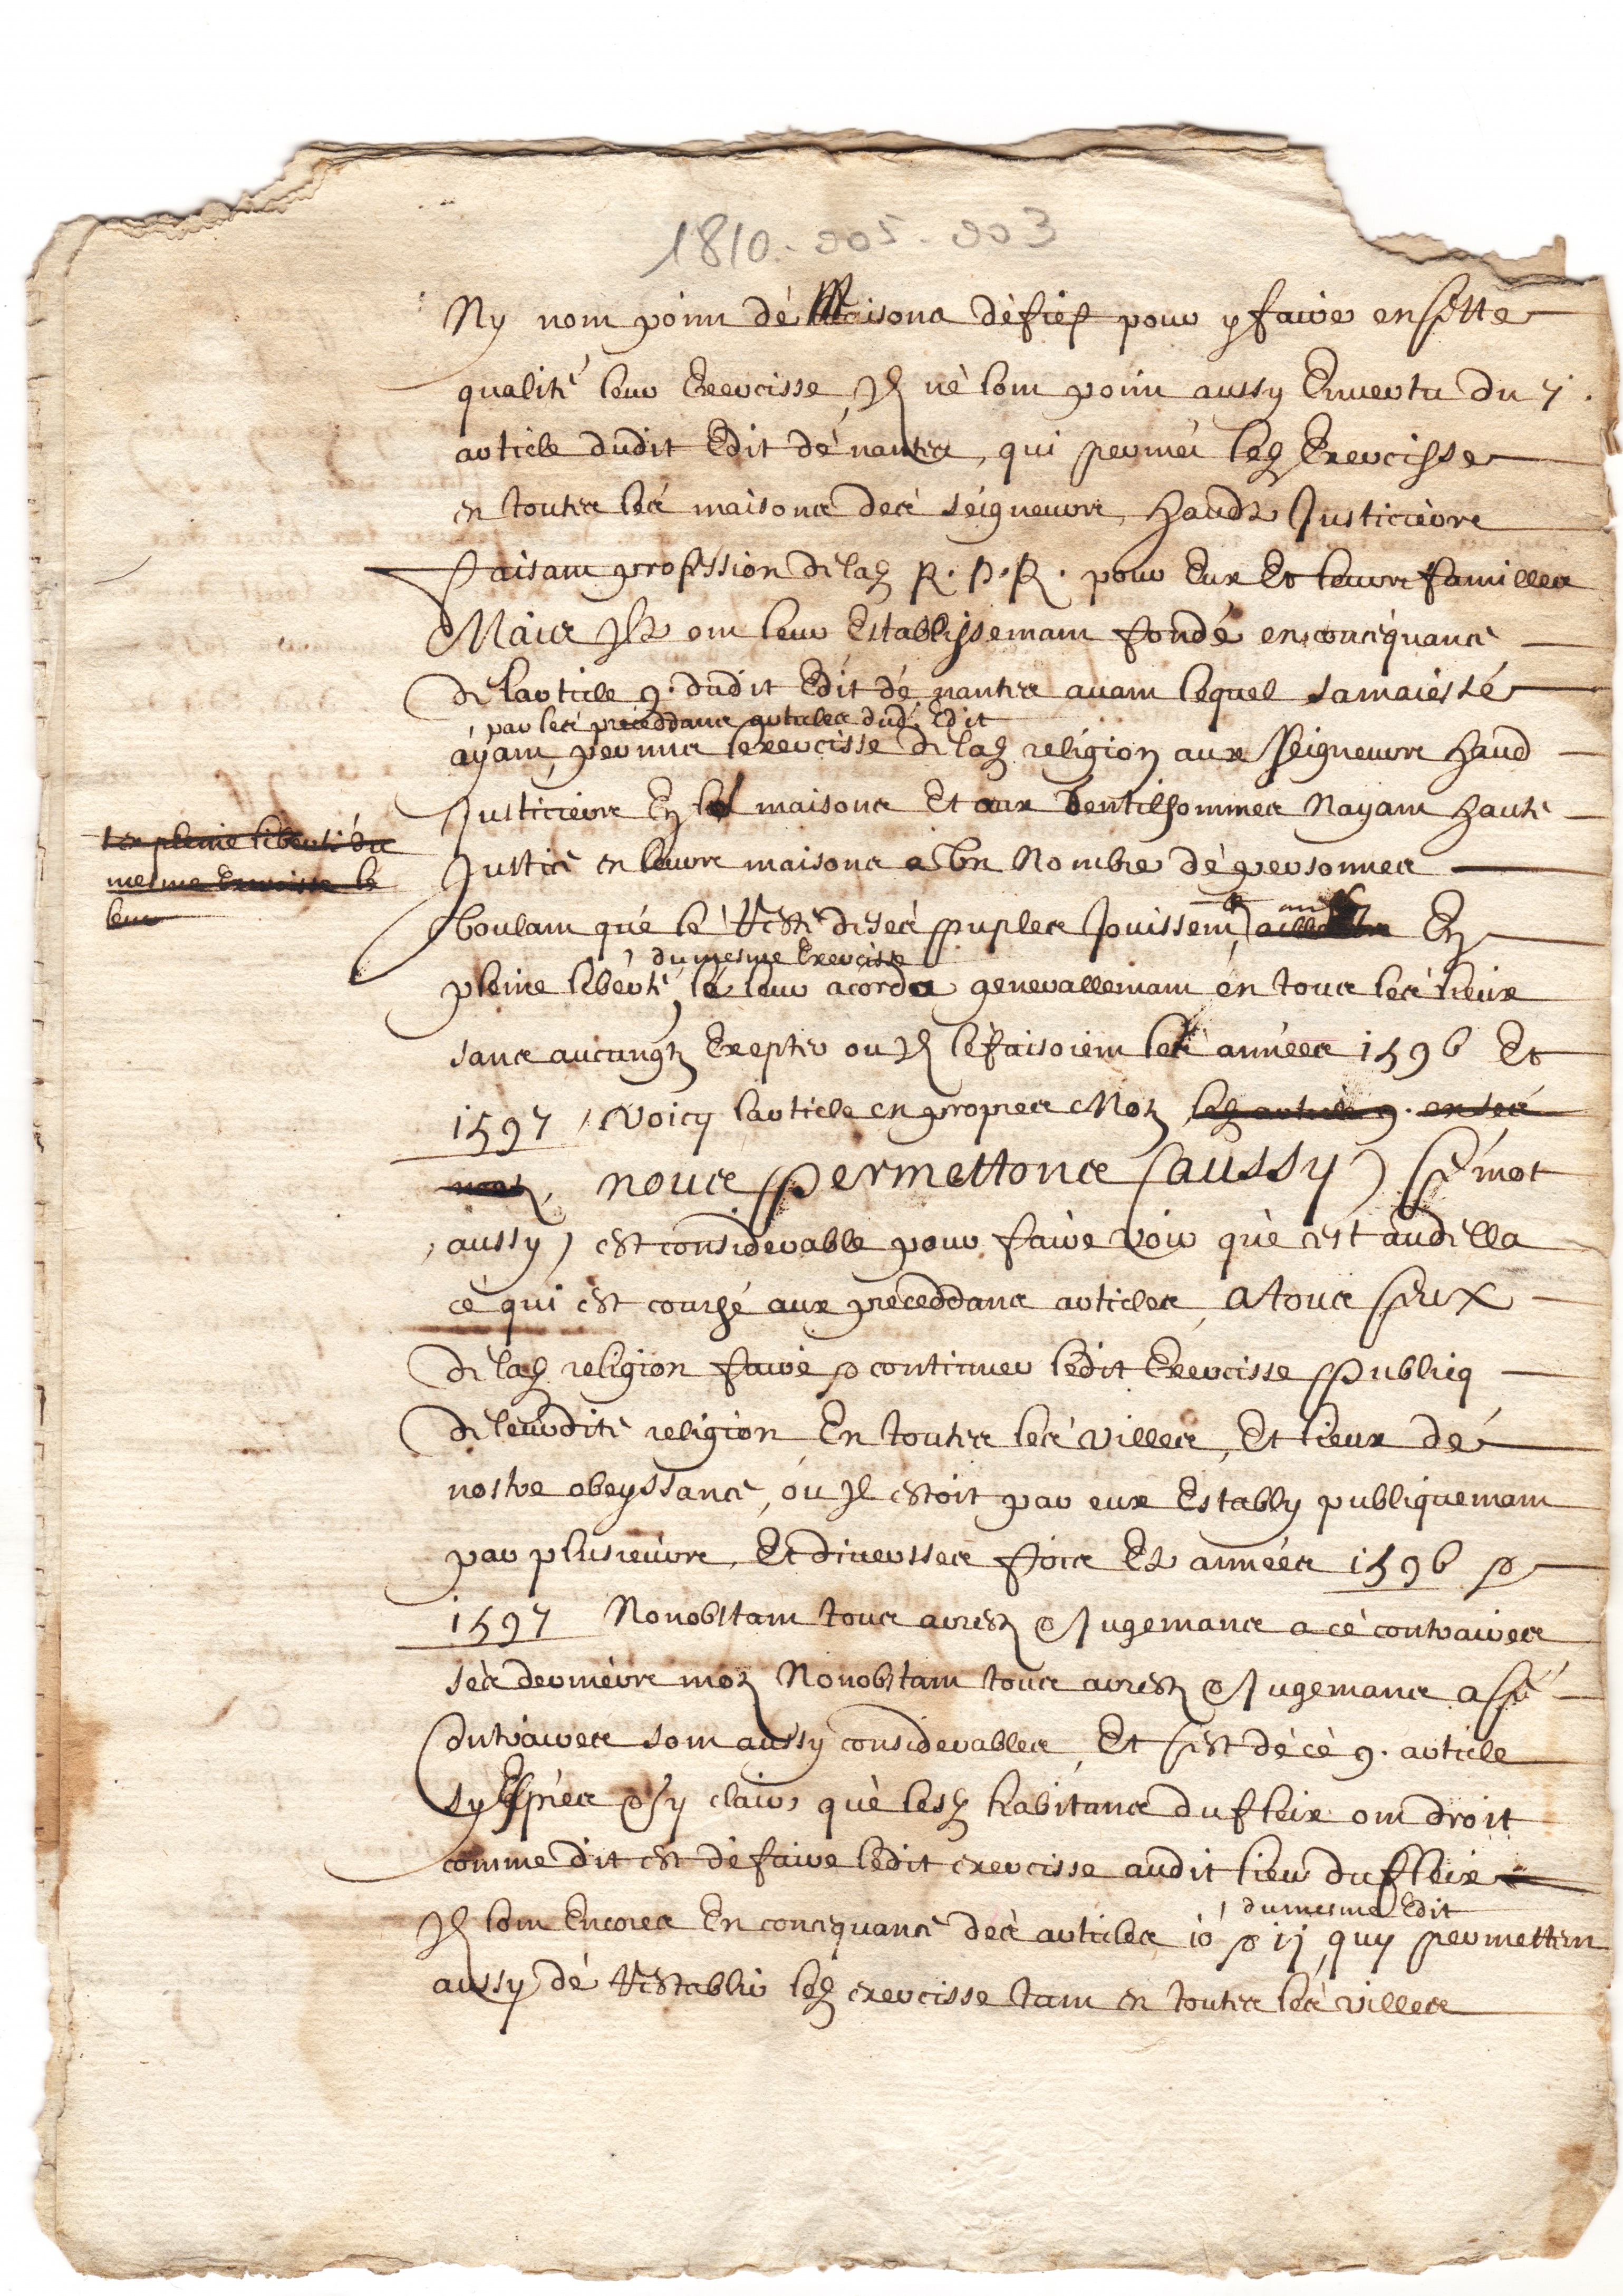 1810-005-003
Ny nont point dé Maisons dé fief pour y faire en sette
qualité leur Exercisse, Il né lont point aussy En vertu du 7.
article dudit Edit dé nantes, qui permet led Exercisse
en toutes les maisons des séigneurs, Hauds Justiciers
Faisant profession de lad R. P. R. pour Eux Et leurs familles
Mais Ils ont leur Establissemant fondé en conséquance
de larticle 9. dudit Edit dé nantes avant lequel sa maiesté
par les preceddans articles dud Edit
áyant, permis lexercisse de lad religion aux Seigneurs Haud
Justiciers En les maisons Et aux Gentilhommes Nayant Haute
Justice en leurs maisons a Un Nombre dé personnes
ler pleine liberté du
mesme Exercisse le
leur
Voulant qué le resté de sés puples Jouissent, En
du mesme Exercisse
pleine liberté, lé leur acorda generallemant én tous les lieux
sans aucungz Exepter ou Il lé faisoient les années 1596 Et
1597, Voicy larticle en propres Motz led article 9. en ses
motz, nous permettons (aussy) Sé mot
(aussy) est considerable pour faire voir qué cest audella
cé qui est couché aux preceddans articles, A tous Seux
de lad religion faire & continuer ledit Exercisse Publicq
de leurdite religion En toutes les villes, Et lieux dé
nostre obeyssance, óu Il estoit par eux Estably publiquemant
par plusieurs, Et diversses fois Es années 1596 &
1597 Nonobstant tous arrestz & Jugemans a cé contraires
sés derniers motz Nonobstant tous arrestz & Jugemans a Sé
Contraires sont aussy considerables, Et Sest dé cé 9. article
sy Exprés & sy clair, qué lesd habitans du fleix ont droit
comme dit est dé faire ledit exercisse audit lieu du fleix
du mesme Edit
Il lont Encores En consequance dés articles 10 & 11, quy permettent
aussy dé restablir led exercisse tant en toutes les villes